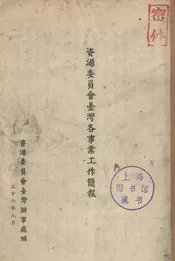 密件
資源委員會臺灣各事業工作簡報
資源委員會臺灣辦事處編
三十六年九月
上海
图书馆
藏书